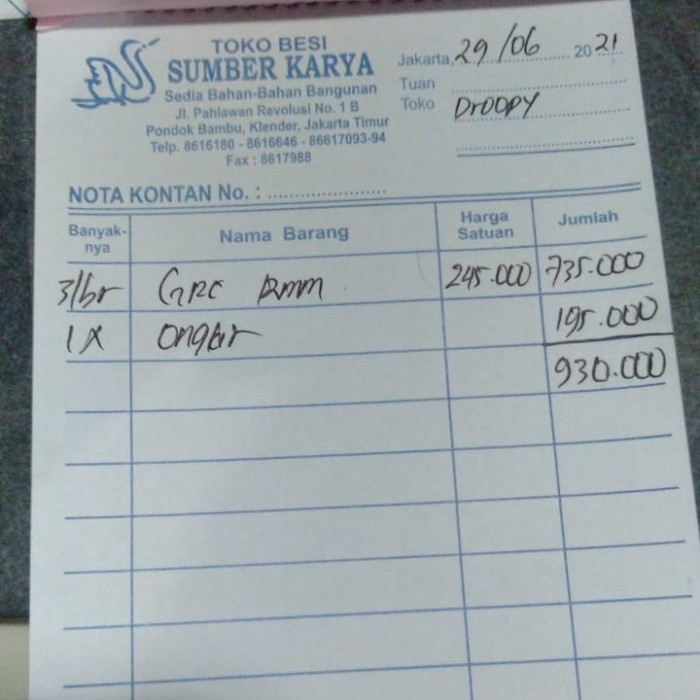 TOKO BESI
SUMBER KARYA
Sedia Bahan-Bahan Bangunan
Jl. Pahlawan Revolusi No. 1 B
Pondok Bambu, Klender, Jakarta Timur
Telp. 8616180 - 8616646 - 86617093-94
Fax : 8617988
Jakarta, 29/06 2021
Tuan
Toko Droopy
NOTA KONTAN No. :
Banyak-nya Nama Barang Harga Satuan Jumlah
3 lbr GRC mm 245.000 735.000
1 x ongkir 195.000
930.000